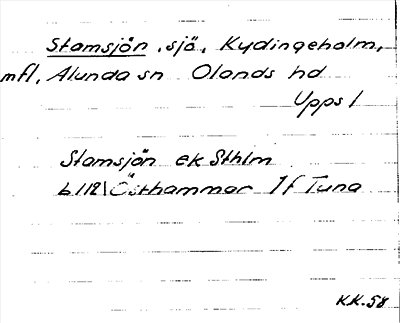 Stamsjön, sjö, Kydingeholm,
mfl, Alunda sn Olands hd
Upps l
Stamsjön ek Sthlm
bl 121 Östhammar If Tuna
KK.58